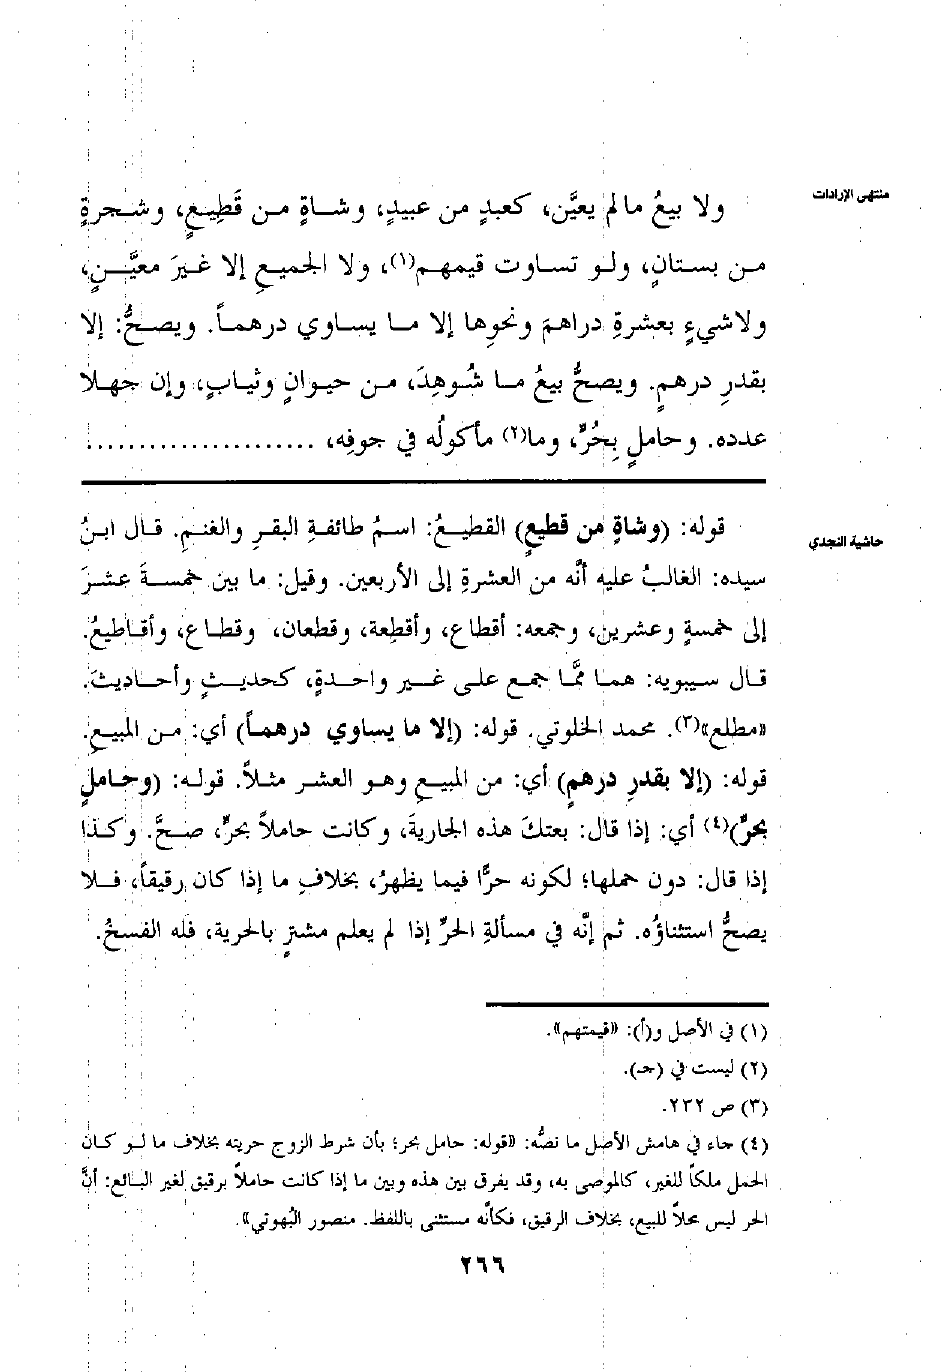 منتهى الإرادات
ولا بيعُ مالم يعيَّن، كعبدٍ من عبيدٍ، وشاةٍ من قَطِيعٍ، وشجرةٍ
من بستانٍ، ولو تساوت قيمهم(١)، ولا الجميعِ إلا غيرَ معيَّنٍ،
ولاشيءٍ بعشرةِ دراهمَ ونحوِها إلا ما يساوي درهماً. ويصحُّ: إلا
بقدرِ درهمٍ. ويصحُّ بيعُ ما شُوهِدَ، من حيوانٍ وثيابٍ، وإن جهلا
عدده. وحاملٍ بِحُرٍّ، وما(٢) مأكولُه في جوفِه، ......................
حاشية النجدي
قوله: (وشاةٍ من قطيعٍ) القطيعُ: اسمُ طائفةِ البقرِ والغنمِ. قال ابنُ
سيده: الغالبُ عليه أنَّه من العشرةِ إلى الأربعين. وقيل: ما بين خمسةَ عشرَ
إلى خمسةٍ وعشرين، وجمعه: أقطاع، وأقطِعة، وقطعان، وقطاع، وأقاطيعُ.
قال سيبويه: هما ممَّا جمع على غير واحدةٍ، كحديثٍ وأحاديثَ.
«مطلع»(٣). محمد الخلوتي. قوله: (إلا ما يساوي درهماً) أي: من المبيعِ.
قوله: (إلا بقدرِ درهمٍ) أي: من المبيعِ وهو العشر مثلاً. قوله: (وحاملٍ
بحرٍّ)(٤) أي: إذا قال: بعتكَ هذه الجاريةَ، وكانت حاملاً بحرٍّ، صحَّ. وكذا
إذا قال: دون حملها؛ لكونه حرًّا فيما يظهرُ، بخلافِ ما إذا كان رقيقاً، فلا
يصحُّ استثناؤُه. ثم إنَّه في مسألةِ الحرِّ إذا لم يعلم مشترٍ بالحرية، فله الفسخُ.
(١) في الأصل و(أ): «قيمتهم».
(٢) ليست في (جـ).
(٣) ص ٢٣٢.
(٤) جاء في هامش الأصل ما نصُّه: «قوله: حامل بحر؛ بأن شرط الزوج حريته بخلاف ما لو كان
الحمل ملكاً للغير، كالموصى به، وقد يفرق بين هذه وبين ما إذا كانت حاملاً برقيق لغير البائع: أنَّ
الحر ليس محلاً للبيع، بخلاف الرقيق، فكأنَّه مستثنى باللفظ. منصور البُهوتي».
٢٦٦